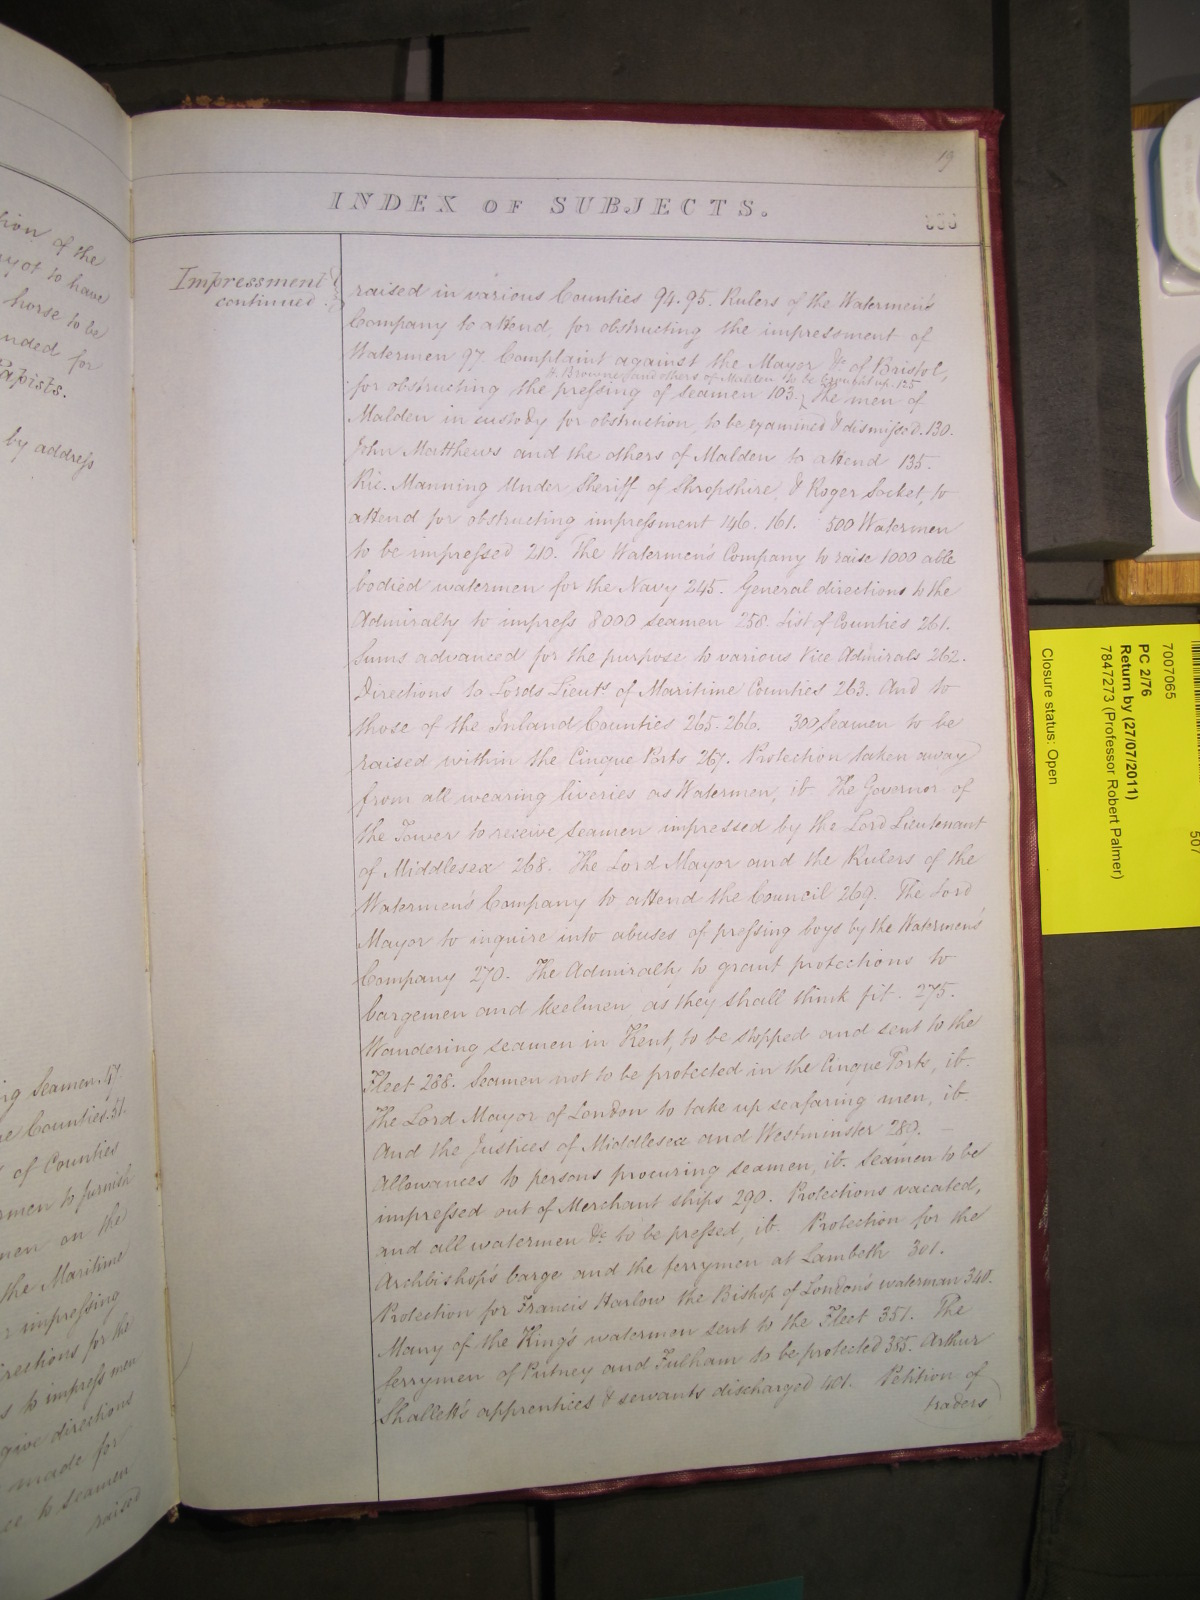 19
INDEX OF SUBJECTS.
Impressment
continued.
raised in various Counties 94.95. Rulers of the Watermen's
Company to attend, for obstructing the impressment of
Watermen 97. Complaint against the Mayor &c of Bristol,
H. Browne and others of Malden to be brought up. 125
for obstructing the pressing of seamen 103. The men of
Malden in custody for obstruction, to be examined & dismissed. 130.
John Matthews and the others of Malden to attend 135.
Ric. Manning Under Sheriff of Shropshire, & Roger Socket, to
attend for obstructing impressment 146. 161. 500 Watermen
to be impressed 210. The Watermen's Company to raise 1000 able
bodied watermen for the Navy 245. General directions to the
Admiralty to impress 8000 seamen 258. List of Counties 261.
Sums advanced for the purpose to various Vice Admirals 262.
Directions to Lords Lieuts of Maritime Counties 263. And to
those of the Inland Counties 265-266. 300 Seamen to be
raised within the Cinque Ports 267. Protection taken away
from all wearing liveries as Watermen, ib. The Governor of
the Tower to receive seamen impressed by the Lord Lieutenant
of Middlesex 268. The Lord Mayor and the Rulers of the
Watermen's Company to attend the Council 269. The Lord
Mayor to inquire into abuses of pressing boys by the Watermen's
Company 270. The Admiralty to grant protections to
bargemen and keelmen, as they shall think fit. 275.
Wandering seamen in Kent, to be stopped and sent to the
Fleet 288. Seamen not to be protected in the Cinque Ports, ib.
The Lord Mayor of London to take up seafaring men, ib.
And the Justices of Middlesex and Westminster 289. –
Allowances to persons procuring seamen, ib. Seamen to be
impressed out of Merchant ships 290. Protections vacated,
and all watermen &c to be pressed, ib. Protection for the
Archbishop's barge and the ferrymen at Lambeth 301.
Protection for Francis Harlow the Bishop of London's waterman 340.
Many of the King's watermen sent to the Fleet 351. The
ferrymen of Putney and Fulham to be protected 385. Arthur
Shallett's apprentices & servants discharged 401. Petition of
traders
tion of the
to have
horse to be
for
Papists.
by address
ng Seamen. 47.
Counties. 51.
of Counties
men to furnish
men on the
the Maritime
impressing
directions for the
s to impress men
give directions
made for
to seamen
raised
7007065
PC 2/76
Return by (27/07/2011)
7847273 (Professor Robert Palmer)
Closure status: Open
507